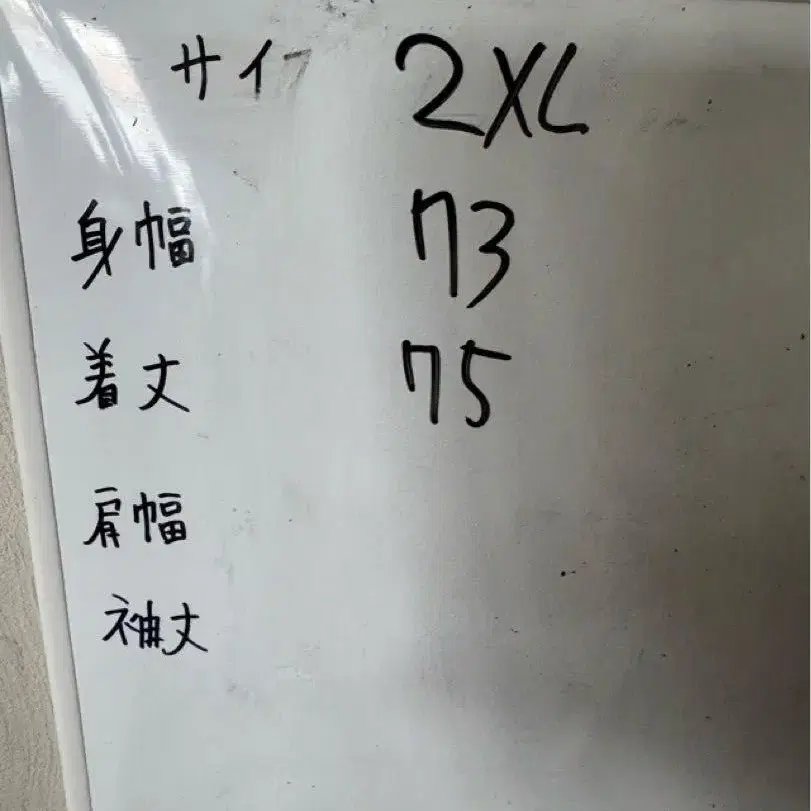 サイズ 2XL
身幅 73
着丈 75
肩幅
袖丈